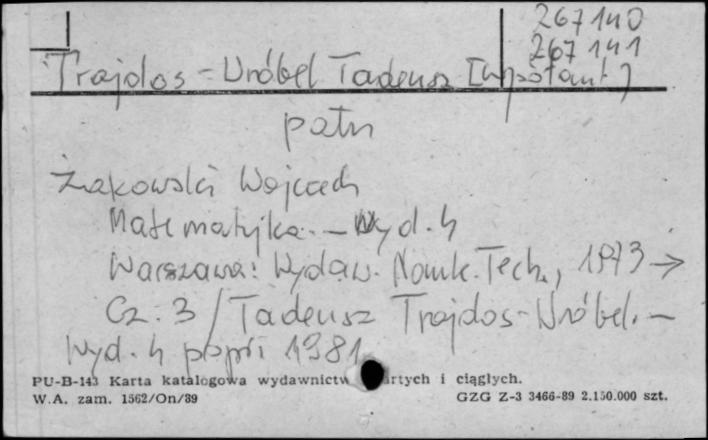 267140
267141
Trajdos-Wróbel Tadeusz [współaut.]
patrz
Żakowski Wojciech
Matematyka. - Wyd. 4
Warszawa: Wydaw. Nauk. Tech., 1973 →
Cz. 3 / Tadeusz Trajdos-Wróbel. -
Wyd. 4 popr. 1981
PU-B-143 Karta katalogowa wydawnictw artych i ciągłych.
W.A. zam. 1562/On/89 GZG Z-3 3466-89 2.150.000 szt.